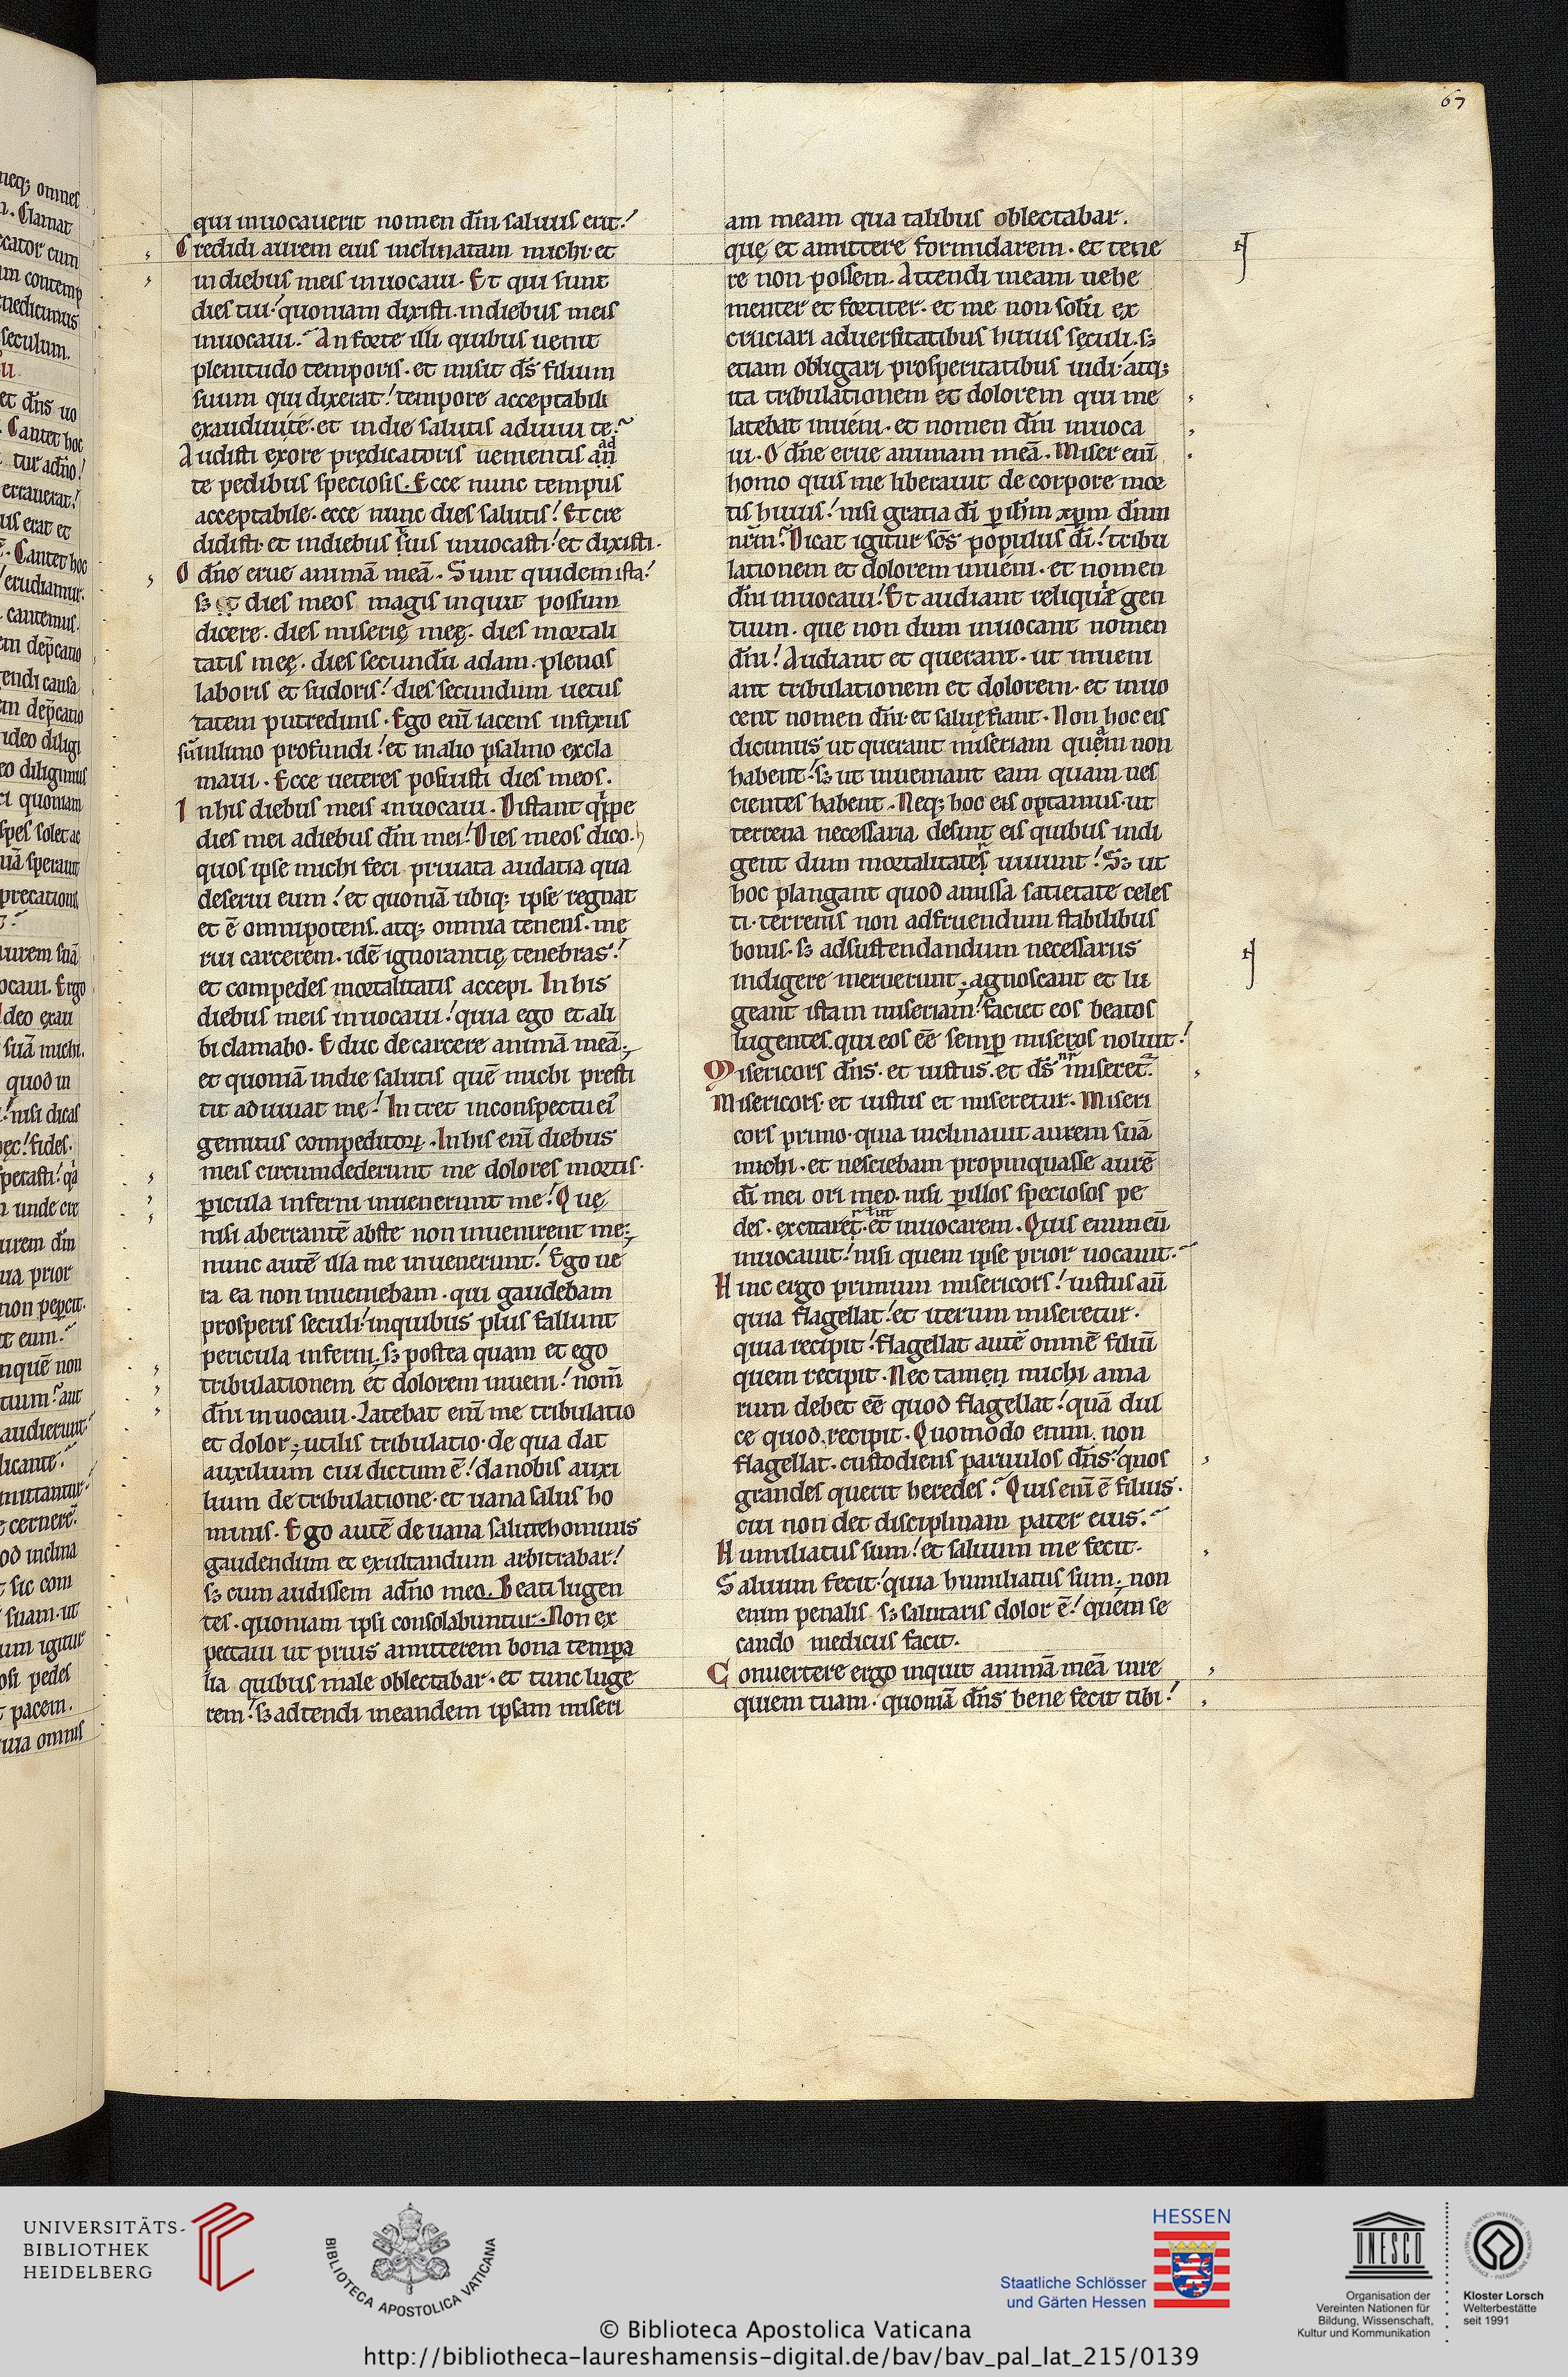 67
qui inuocauerit nomen dn̄i saluus erit.
Credidi aurem eius inclinatam michi· et
in diebus meis inuocaui. Et qui sunt
dies tui· quoniam dixisti· in diebus meis
inuocaui. An forte illi quibus uenit
plenitudo temporis· et misit ds̄ filium
suum qui dixerat! tempore acceptabili
exaudiui te· et in die salutis adiuui te.
Audisti ex ore predicatoris uenientis an̄
te pedibus speciosis. Ecce nunc tempus
acceptabile· ecce nunc dies salutis! Et cre
didisti· et in diebus suis inuocasti· et dixisti.
O dn̄e erue animā meā. Sunt quidem ista!
sꝫ et dies meos magis inquit possum
dicere. dies miserię meę. dies mortali
tatis meę. dies secundū adam. plenos
laboris et sudoris! dies secundum uetus
tatem putredinis. Ego eni᷒ iacens infixus
sū in limo profundi! et in alio psalmo excla
maui. Ecce ueteres posuisti dies meos.
In his diebus meis inuocaui. Distant qͥppe
dies mei a diebus dn̄i mei! Dies meos dico.
quos ipse michi feci priuata audatia qua
deserui eum! et quoniā ubiqꝫ ipse regnat
et ē omnipotens. atqꝫ omnia tenens. me
rui carcerem. idē ignorantię tenebras!
et compedes mortalitatis accepi. In his
diebus meis inuocaui! quia ego et ali
bi clamabo. Educ de carcere animā meā;
et quoniā in die salutis quē michi presti
tit adiuuat me! Intret in conspectu ei᷒
gemitus compeditoꝝ. In his enī diebus
meis circumdederunt me dolores mortis.
ꝑicula inferni inuenerunt me! Quę
nisi aberrantē abs te non inuenirent me;
nunc autē illa me inuenerunt! Ego ue
ra ea non inueniebam. qui gaudebam
prosperis seculi· in quibus plus fallunt
pericula inferni. sꝫ postea quam et ego
tribulationem et dolorem inueni! nom̄
dn̄i inuocaui. Latebat enī me tribulatio
et dolor; utilis tribulatio· de qua dat
auxilium cui dictum ē! da nobis auxi
lium de tribulatione· et uana salus ho
minis. Ego autē de uana salute hominis
gaudendum et exultandum arbitrabar!
sꝫ cum audissem a dn̄o meo. Beati lugen
tes. quoniam ipsi consolabuntur. Non ex
pectaui ut prius amitterem bona tempa
lia quibus male oblectabar· et tunc luge
rem! sꝫ adtendi in eandem ipsam miseri
am meam qua talibus oblectabar.
quę et amittere formidarem. et tene
re non possem. Attendi meam uehe
menter et fortiter· et me non solū ex
cruciari aduersitatibus huius sęculi. sꝫ
etiam obligari prosperitatibus uidi· atqꝫ
ita tribulationem et dolorem qui me
latebat inueni· et nomen dn̄i inuoca
ui. O dn̄e erue animam meā. Miser enī
homo quis me liberauit de corpore mor
tis huius! nisi gratia dī ꝑ ihm̄ xp̄m dn̄m
nrm̄. Dicat igitur scs̄ populus dī! tribu
lationem et dolorem inueni· et nomen
dn̄i inuocaui! Et audiant reliquę gen
tium. que non dum inuocant nomen
dn̄i! Audiant et querant· ut inueni
ant tribulationem et dolorem· et inuo
cent nomen dn̄i· et saluę fiant. Non hoc eis
dicimus ut querant miseriam quam non
habent! sꝫ ut inueniant eam quam nes
cientes habent. Neqꝫ hoc eis optamus· ut
terrena necessaria desint eis quibus indi
gent dum mortalitates uiuunt! Sꝫ ut
hoc plangant quod amissa satietate celes
ti· terrenis non ad fruendum stabilibus
bonis. sꝫ ad sustendandum necessariis
indigere meruerunt; agnoscant et lu
geant istam miseriam! faciet eos beatos
lugentes. qui eos eē semꝑ miseros noluit!
Misericors dn̄s· et iustus. et ds̄ nr̄ miseret᷒.
Misericors· et iustus et miseretur. Miseri
cors primo· quia inclinauit aurem suā
michi· et nesciebam propinquasse aurē
dī mei ori meo. nisi ꝑ illos speciosos pe
des. excitaret ut et inuocarem. Quis enim eū
inuocauit! nisi quem ipse prior uocauit.
Hinc ergo primum misericors! iustus aū
quia flagellat! et iterum miseretur.
quia recipit! flagellat autē omnē filiū
quem recipit. Nec tamen michi ama
rum debet eē quod flagellat! quā dul
ce quod recipit. Quomodo enim non
flagellat· custodiens paruulos dn̄s! quos
grandes querit heredes? Quis enī ē filius.
cui non det disciplinam pater eius.
Humiliatus sum! et saluum me fecit.
Saluum fecit· quia humiliatus sum; non
enim penalis sꝫ salutaris dolor ē! quem se
cando medicus facit.
Conuertere ergo inquit animā meā in re
quiem tuam. quoniā dn̄s bene fecit tibi!
UNIVERSITÄTS-
BIBLIOTHEK
HEIDELBERG
BIBLIOTECA APOSTOLICA VATICANA
HESSEN
Staatliche Schlösser
und Gärten Hessen
UNESCO
Organisation der
Vereinten Nationen für
Bildung, Wissenschaft,
Kultur und Kommunikation
Kloster Lorsch
Welterbestätte
seit 1991
© Biblioteca Apostolica Vaticana
http://bibliotheca-laureshamensis-digital.de/bav/bav_pal_lat_215/0139